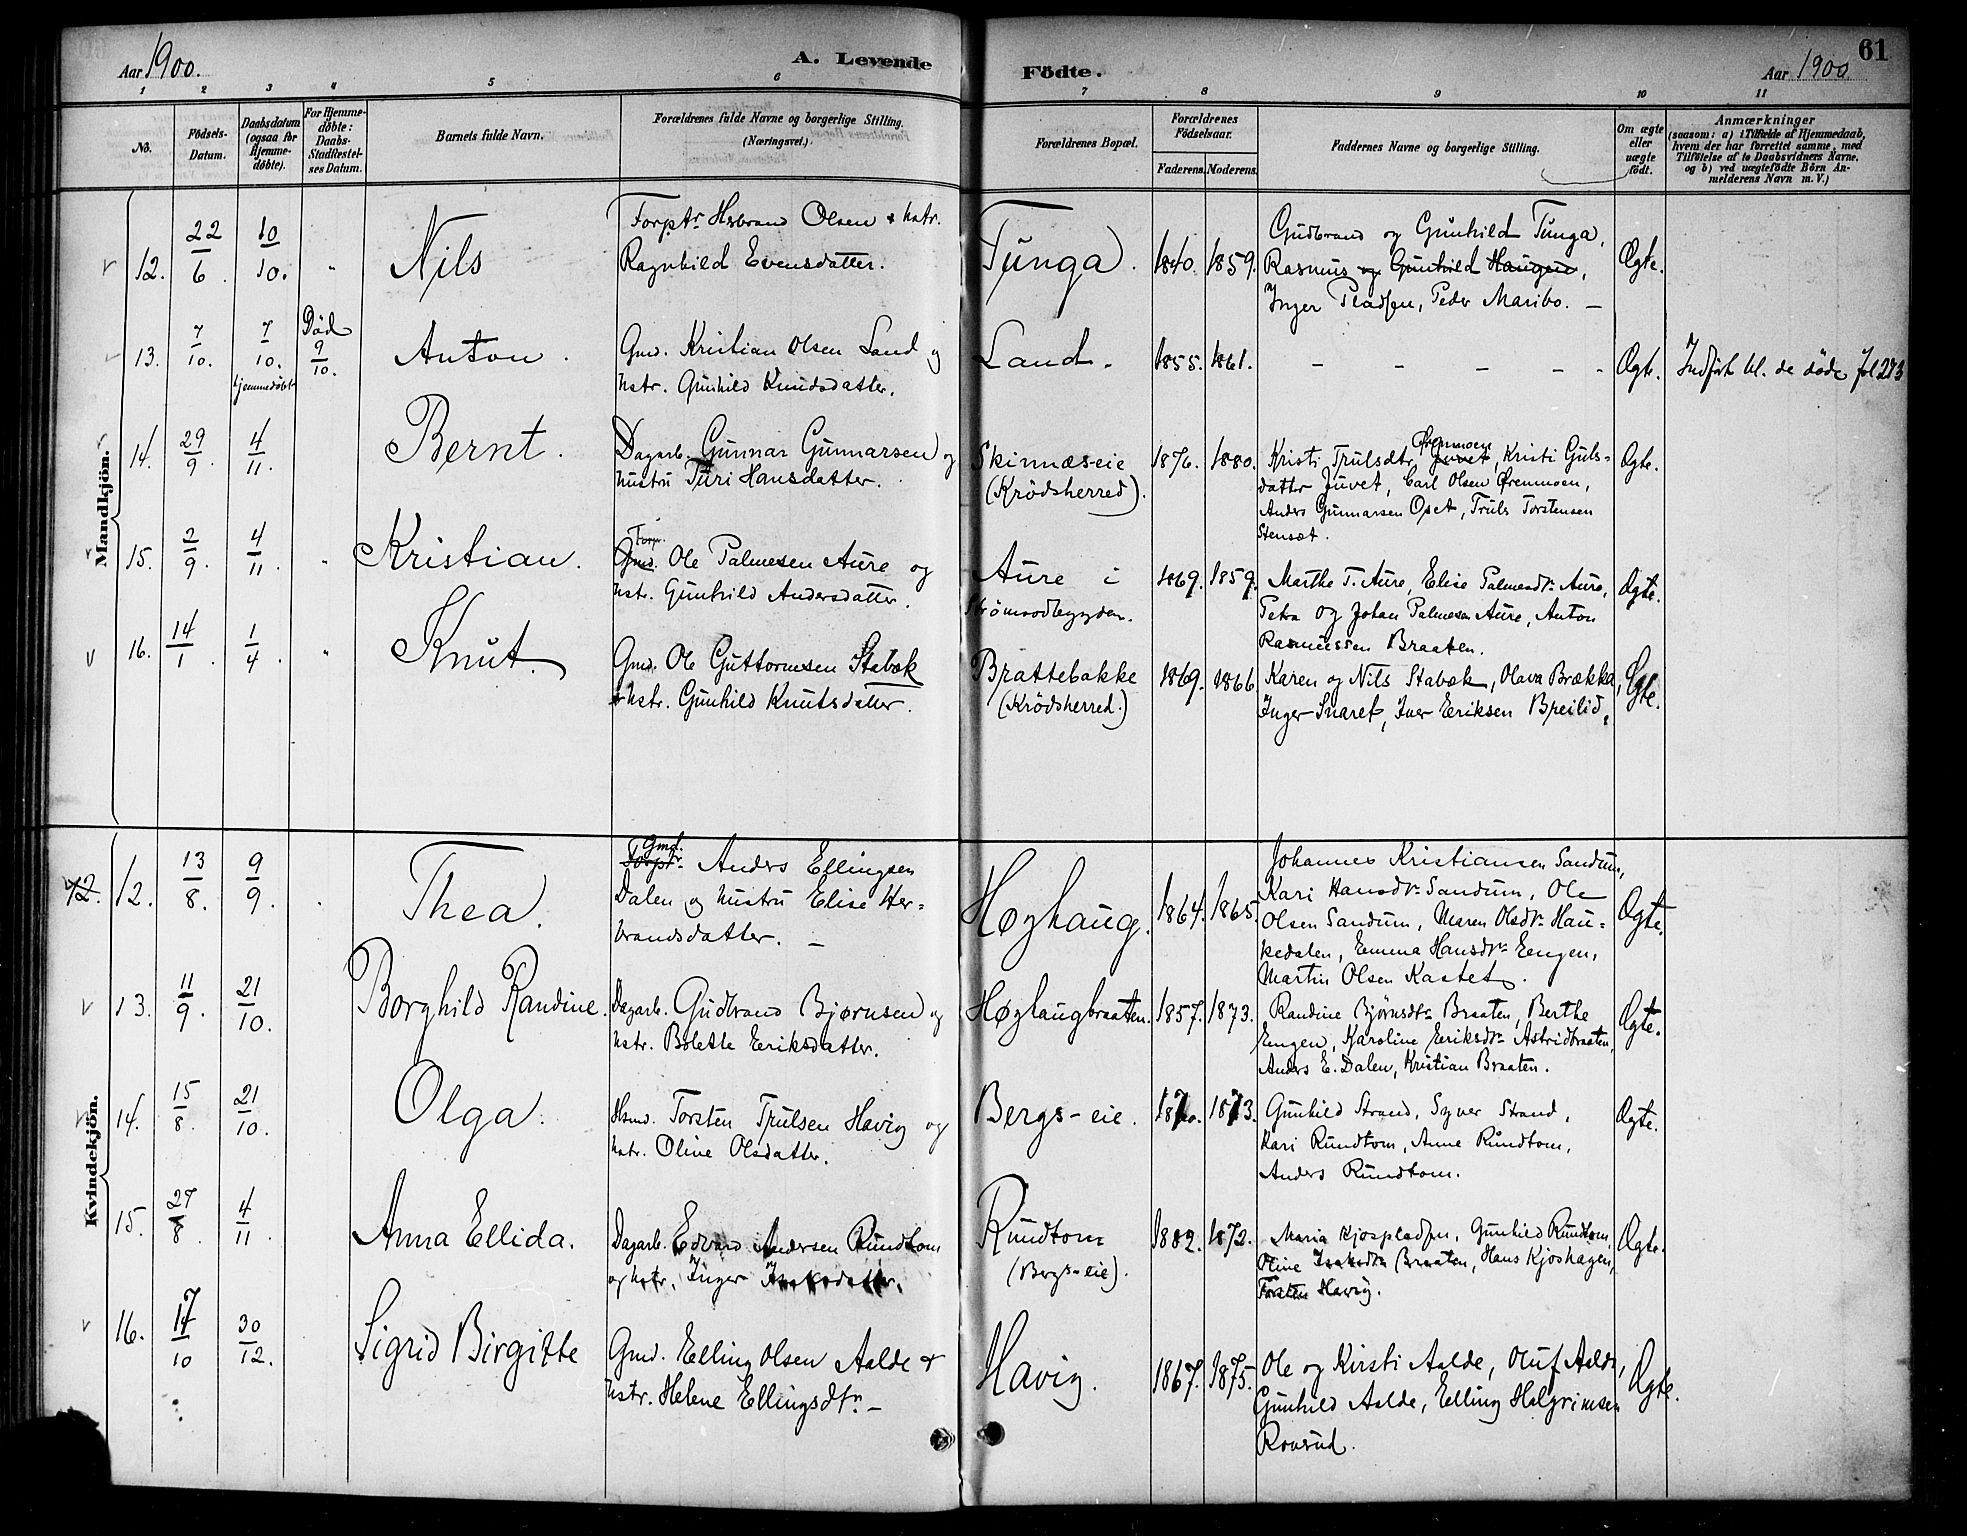 Aar 1900. A. Levende Födte. Aar 1900 61
1 2 3 4 5 6 7 8 9 10 11
No. Födsels-Datum. Daabsdatum (ogsaa for Hjemme-döbte). For Hjemme-döbte: Daabs-Stadfæstel-ses Datum. Barnets fulde Navn. Forældrenes fulde Navne og borgerlige Stilling. (Næringsvei.) Forældrenes Bopæl. Forældrenes Födselsaar. Faderens. Moderens. Faddernes Navne og borgerlige Stilling. Om ægte eller uægte födt. Anmærkninger (saasom: a) i Tilfælde af Hjemmedaab, hvem der har forrettet samme, med Tilföielse af to Daabsvidners Navne, og b) ved uægtefödte Börn An-melderens Navn m. V.)
Mandkjön.
12. 22/6. 10/10. " Nils
Forptr. Herbrand Olsen & hstr.
Ragnhild Evensdatter.
Tunga. 1840. 1859.
Gudbrand og Gunhild Tunga,
Rasmus og Gunhild Haugen,
Inger Pladsen, Peder Maribo. —
Ægte.
13. 7/10. 7/10. hjemmedöbt Död 9/10. Anton.
Gmd. Kristian Olsen Land og
hstr. Gunhild Knudsdatter.
Land. 1855. 1861. - - - - - Ægte. Indført bl. de døde fol 273
14. 29/9. 4/11. Bernt.
Dagarb. Gunnar Gunnarsen og
hustru Turi Hansdatter.
Skinnæseie
(Krödsherred).
1876. 1880.
Kristi Trulsdtr. Juvet Ørenmoen, Kristi Guls-
datter Juvet, Carl Olsen Ørenmoen,
Anders Gunnarsen Opset, Truls Torstensen
Stensæt.
Ægte.
15. 2/9. 4/11. " Kristian.
Gmd. Forp. Ole Palmesen Aure og
hstr. Gunhild Andersdatter.
Aure i
Strömsodbygden.
1869. 1859.
Marthe T. Aure, Elise Palmesdtr. Aure,
Petra og Johan Palmesen Aure, Anton
Rasmussen Braaten.
Ægte.
16. 14/1. 1/4. " Knut.
Gmd. Ole Guttormsen Stabæk
& hstr. Gunhild Knutsdatter.
Brattebakke
(Krödsherred.)
1869. 1866.
Karen og Nils Stabæk, Olava Brækka,
Inger Snaret, Iver Eriksen Breilid.
Ægte.
Kvindekjön.
12. 12. 13/8. 9/9. Thea.
Forptr. Gmd. Anders Ellingsen
Dalen og hustru Elise Her-
brandsdatter. —
Høghaug. 1864. 1865.
Johannes Kristiansen Sandum,
Kari Hansdtr. Sandum, Ole
Olsen Sandum, Maren Olsdtr. Hau-
kedalen, Emma Hansdtr. Eengen,
Martin Olsen Kastet.
Ægte.
13. 11/9. 21/10. Borghild Randine.
Dagarb. Gudbrand Bjørnsen og
hstr. Bolette Eriksdatter.
Høghaugbraaten. 1857. 1873.
Randine Bjørnsdtr. Braaten, Berthe
Eengen, Karoline Eriksdtr. Astridbraaten,
Anders E. Dalen, Kristian Braaten.
Ægte.
14. 15/8. 21/10. Olga.
Hsmd. Torsten Trulsen Havig og
hstr. Oline Olsdatter.
Bergs-eie. 1870. 1873.
Gunhild Strand, Syver Strand,
Kari Rundtom, Anne Rundtom,
Anders Rundtom.
Ægte.
15. 27/8. 4/11. Anna Ellida.
Dagarb. Edvard Andersen Rundtom
og hstr. Inger Isaksdatter.
Rundtom
(Bergs-eie).
1882. 1872.
Maria Kjospladsen, Gunhild Rundtom,
Oline Isaksdtr. Braaten, Hans Kjoshagen,
Torsten Havig.
Ægte.
16. 17/10 30/12. Sigrid Birgitte
Gmd. Elling Olsen Aalde &
hstr. Helene Ellingsdtr. —
Havig. 1867. 1875.
Ole og Kirsti Aalde, Oluf Aalde,
Gunhild Aalde, Elling Halgrimsen
Ronsrud.
Ægte.